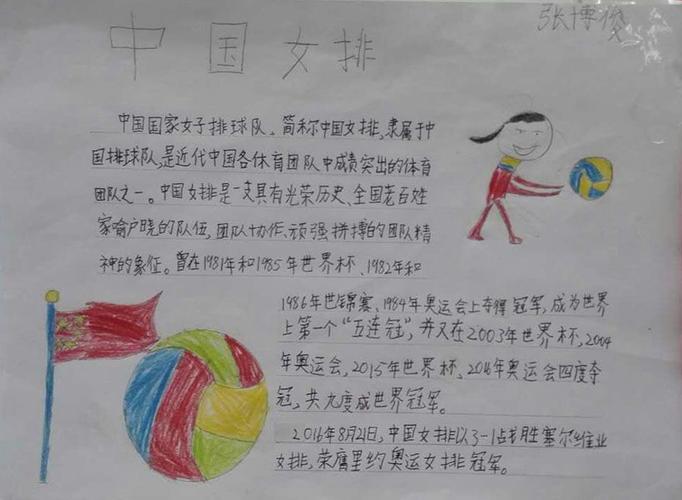 中国女排
张博俊
中国国家女子排球队,简称中国女排,隶属于中
国排球队,是近代中国各体育团队中成绩突出的体育
团队之一。中国女排是一支具有光荣历史、全国老百姓
家喻户晓的队伍,团队协作、顽强拼搏的团队精
神的象征。曾在1981年和1985年世界杯、1982年和
1986年世锦赛、1984年奥运会上夺得冠军,成为世界
上第一个“五连冠”,并又在2003年世界杯,2004
年奥运会,2015年世界杯,2016年奥运会四度夺
冠,共九度成世界冠军。
2016年8月21日,中国女排以3-1占戈胜塞尔维亚
女排,荣膺里约奥运女排冠军。